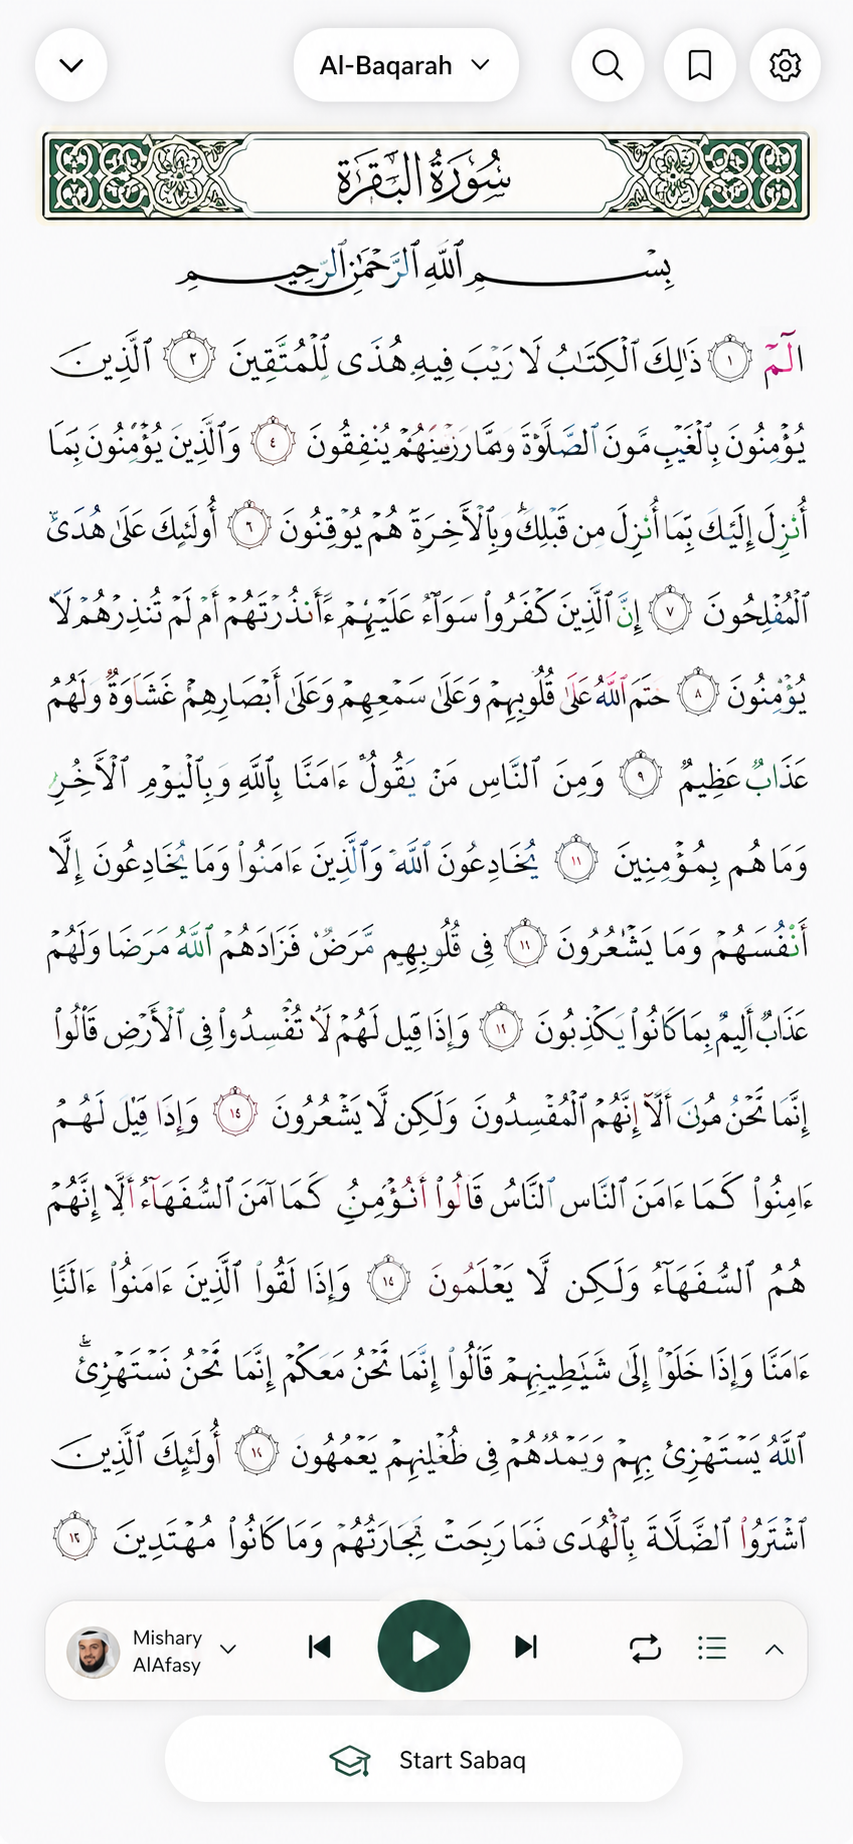 Al-Baqarah
سُورَةُ البَقَرَة
بِسْمِ ٱللَّهِ ٱلرَّحْمَٰنِ ٱلرَّحِيمِ
الٓمٓ ١ ذَٰلِكَ ٱلْكِتَـٰبُ لَا رَيْبَ فِيهِ هُدَى لِّلْمُتَّقِينَ ٢ ٱلَّذِينَ
يُؤْمِنُونَ بِٱلْغَيْبِ مَّونَ ٱلصَّلَوٰةَ يُنْفِقُونَ ٤ وَٱلَّذِينَ يُؤْمِنُونَ بِمَا
أُنْزِلَ إِلَيْكَ بِّمَا أُنْزِلَ مِن قَبْلِكَ وَبِٱلْأَخِرَةِ هُمْ يُوْقِنُونَ ٦ أُولَئِكَ عَلَىٰ هُدَىً
ٱلْمُفْلِحُونَ ٧ إِنَّ ٱلَّذِينَ كَفَرُوا۟ سَوَآءٌ عَلَيْهِمْ ءَأَنذَرْتَهُمْ أَمْ لَمْ تُنذِرْهُمْ لَا
يُؤْمِنُونَ ٨ خَتَمَ ٱللَّهُ عَلَىٰ قُلُوبِهِمْ وَعَلَىٰ سَمْعِهِمْ وَعَلَىٰ أَبْصَارِهِمْ غَشَاوَةٌ وَلَهُمْ
عَذَابٌ عَظِيمٌ ٩ وَمِنَ ٱلنَّاسِ مَنْ يَقُولُ ءَامَنَّا بِٱللَّهِ وَبِٱلْيَوْمِ ٱلْأَخِرِ
وَمَا هُم بِمُؤْمِنِينَ ١١ يُخَادِعُونَ ٱللَّهَ وَٱلَّذِينَ ءَامَنُوا۟ وَمَا يُخَادِعُونَ إِلَّا
أَنْفُسَهُمْ وَمَا يَشْعُرُونَ ١١ فِى قُلُوبِهِم مَّرَضٌ فَزَادَهُمْ ٱللَّهُ مَرَضَا وَلَهُمْ
عَذَابٌ أَلِيمٌ بِمَا كَانُوا۟ يَكْذِبُونَ وَإِذَا قِيلَ لَهُمْ لَا تُفْسِدُوا۟ فِى ٱلْأَرْضِ قَالُوا۟
إِنَّمَا نَحْنُ أَلَآ إِنَّهُمْ ٱلْمُفْسِدُونَ وَلَكِن لَّا يَشْعُرُونَ ١٤ وَإِذَا قِيْلَ لَهُمْ
ءَامِنُوا۟ كَمَا ءَامَنَ ٱلنَّاس ٱلنَّاسُ قَالُوا۟ أَنُؤْمِنُ كَمَا آمَنَ ٱلسُّفَهَآءُ أَلَا إِنَّهُمْ
هُمُ ٱلسُّفَهَآءُ وَلَـكِن لَّا يَعْلَمُونَ ١٤ وَإِذَا لَقُوا۟ ٱلَّذِينَ ءَامَنُوا۟
ءَامَنَّا وَإِذَا خَلَوْا۟ إِلَىٰ شَيَٰطِينِهِمْ قَالُوا۟ إِنَّمَا نَحْنُ مَعَكُمْ إِنَّمَا نَحْنُ نَسْتَهْزِئُ
ٱللَّهُ يَسْتَهْزِئُ بِهِمْ وَيَمُدُّهُمْ فِى يَعْمَهُونَ أُولَئِكَ ٱلَّذِينَ
ٱشْتَرُوا۟ ٱلضَّلَالَةَ بِٱلْهُدَى فَمَا رَبِحَتْ تِجَارَتُهُمْ وَمَا كَانُوا۟ مُهْتَدِينَ
Mishary
AlAfasy
Start Sabaq